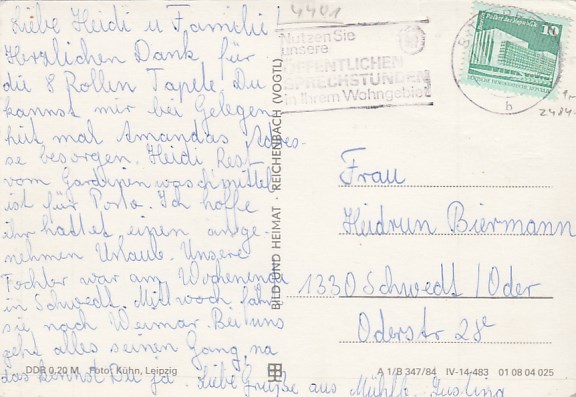 Liebe Heidi u Familie!
Herzlichen Dank für
die 8 Rollen Tapete. Du
kannst mir bei Gelegen
heit mal Amandas Adres-
se besorgen. Heidi Rest
vom Gardinenwaschmittel
ist für Porto. Ich hoffe
ihr hattet einen ange-
nehmen Urlaub. Unsere
Tochter war am Wochenende
in Schwedt. Mittwoch fährt
sie nach Weimar. Bei uns
geht alles seinen Gang, na
das kennst Du ja. Liebe Grüße aus Mühlb.
DDR 0,20 M Foto: Kühn, Leipzig
BILD UND HEIMAT · REICHENBACH (VOGTL)
4401
Nutzen Sie
unsere
ÖFFENTLICHEN
SPRECHSTUNDEN
in Ihrem Wohngebiet
10
b
Frau
Heidrun Biermann
1330 Schwedt/Oder
Oderstr 28c
A 1/B 347/84 IV-14-483 01 08 04 025